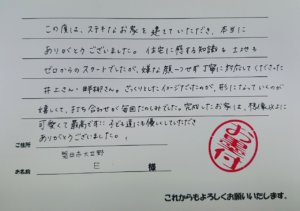 この度は、ステキなお家を建てていただき、本当に
ありがとうございました。住宅に関する知識も土地も
ゼロからのスタートでしたが、嫌な顔一つせず丁寧に対応してくださった
井上さん・さん。ざっくりとしたイメージでしたのが、形になっていくのが
嬉しくて、打ち合わせが毎回たのしみでした。完成したお家は、想像以上に
可愛くて最高です！子ども達にも優しくしていただき
ありがとうございました。
お墨付
ご住所
磐田市大立野
お名前 E 様
これからもよろしくお願いいたします。